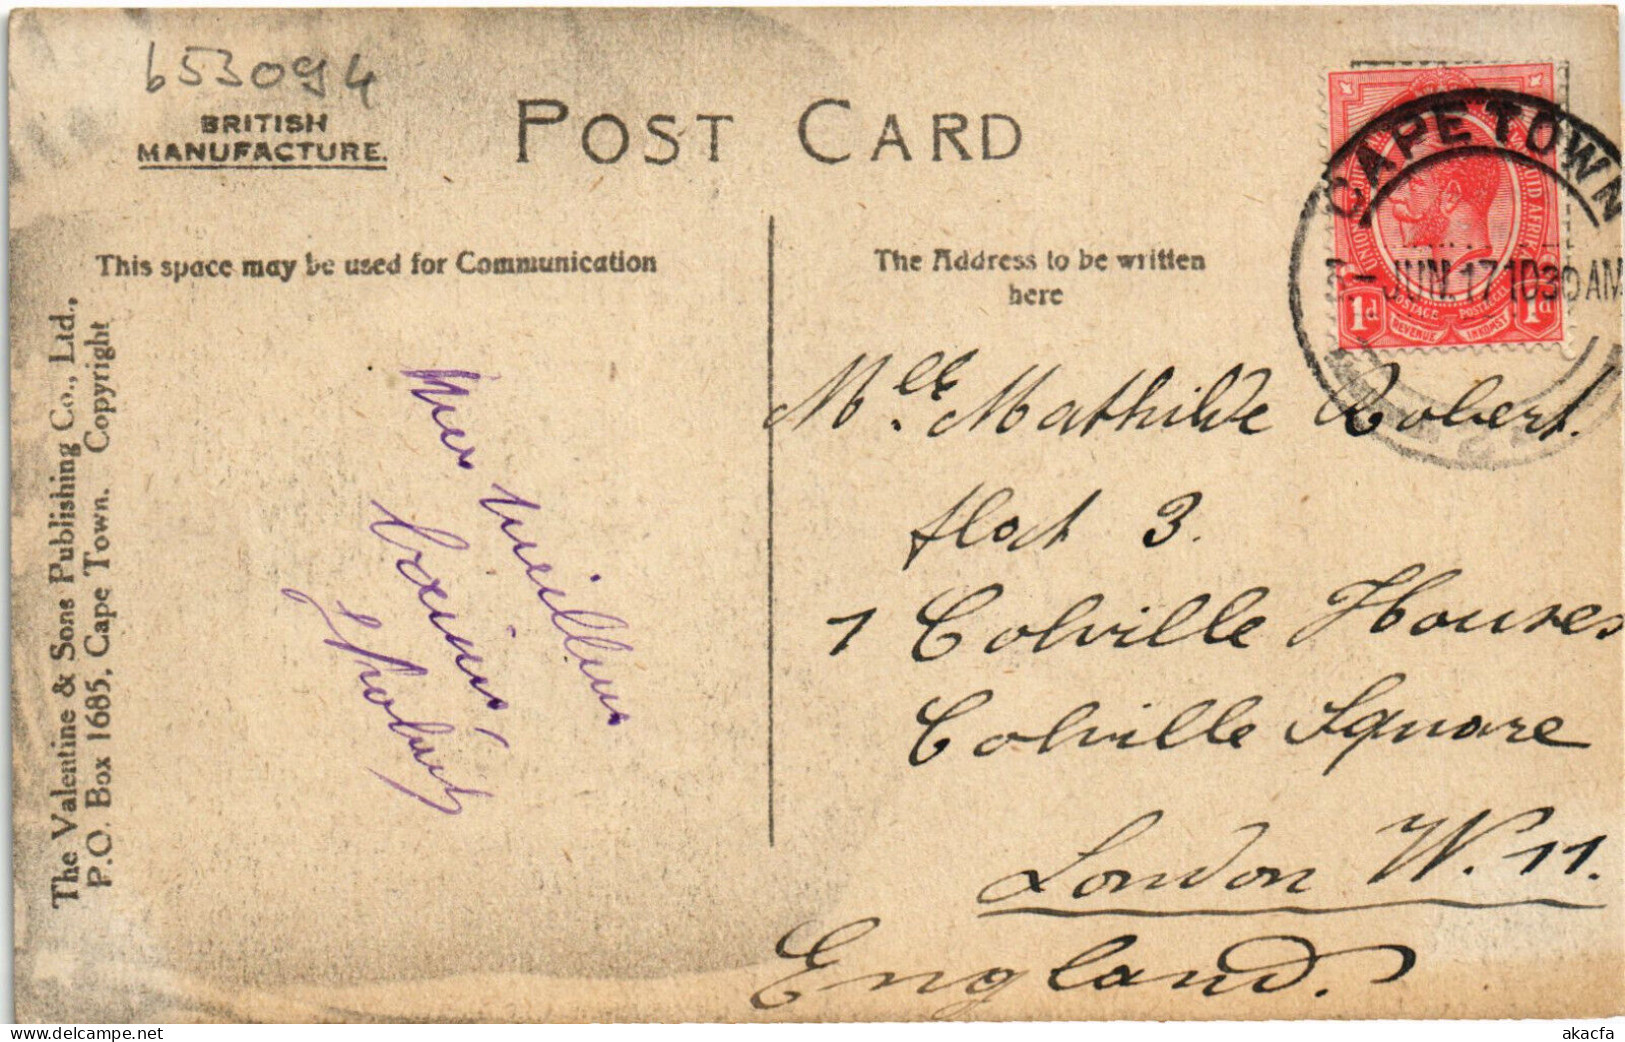 653094
BRITISH
MANUFACTURE.
POST CARD
CAPE TOWN
JUN.17 1030 AM
1d 1d
POSTAGE POSTZEGEL
REVENUE INKOMST
This space may be used for Communication
The Address to be written
here
The Valentine & Sons Publishing Co., Ltd.,
P.O. Box 1685, Cape Town. Copyright
Mes meilleurs
Mlle. Mathilde Robert.
flat 3.
1 Colville Houses
Colville Square
London W. 11.
England.
akacfa